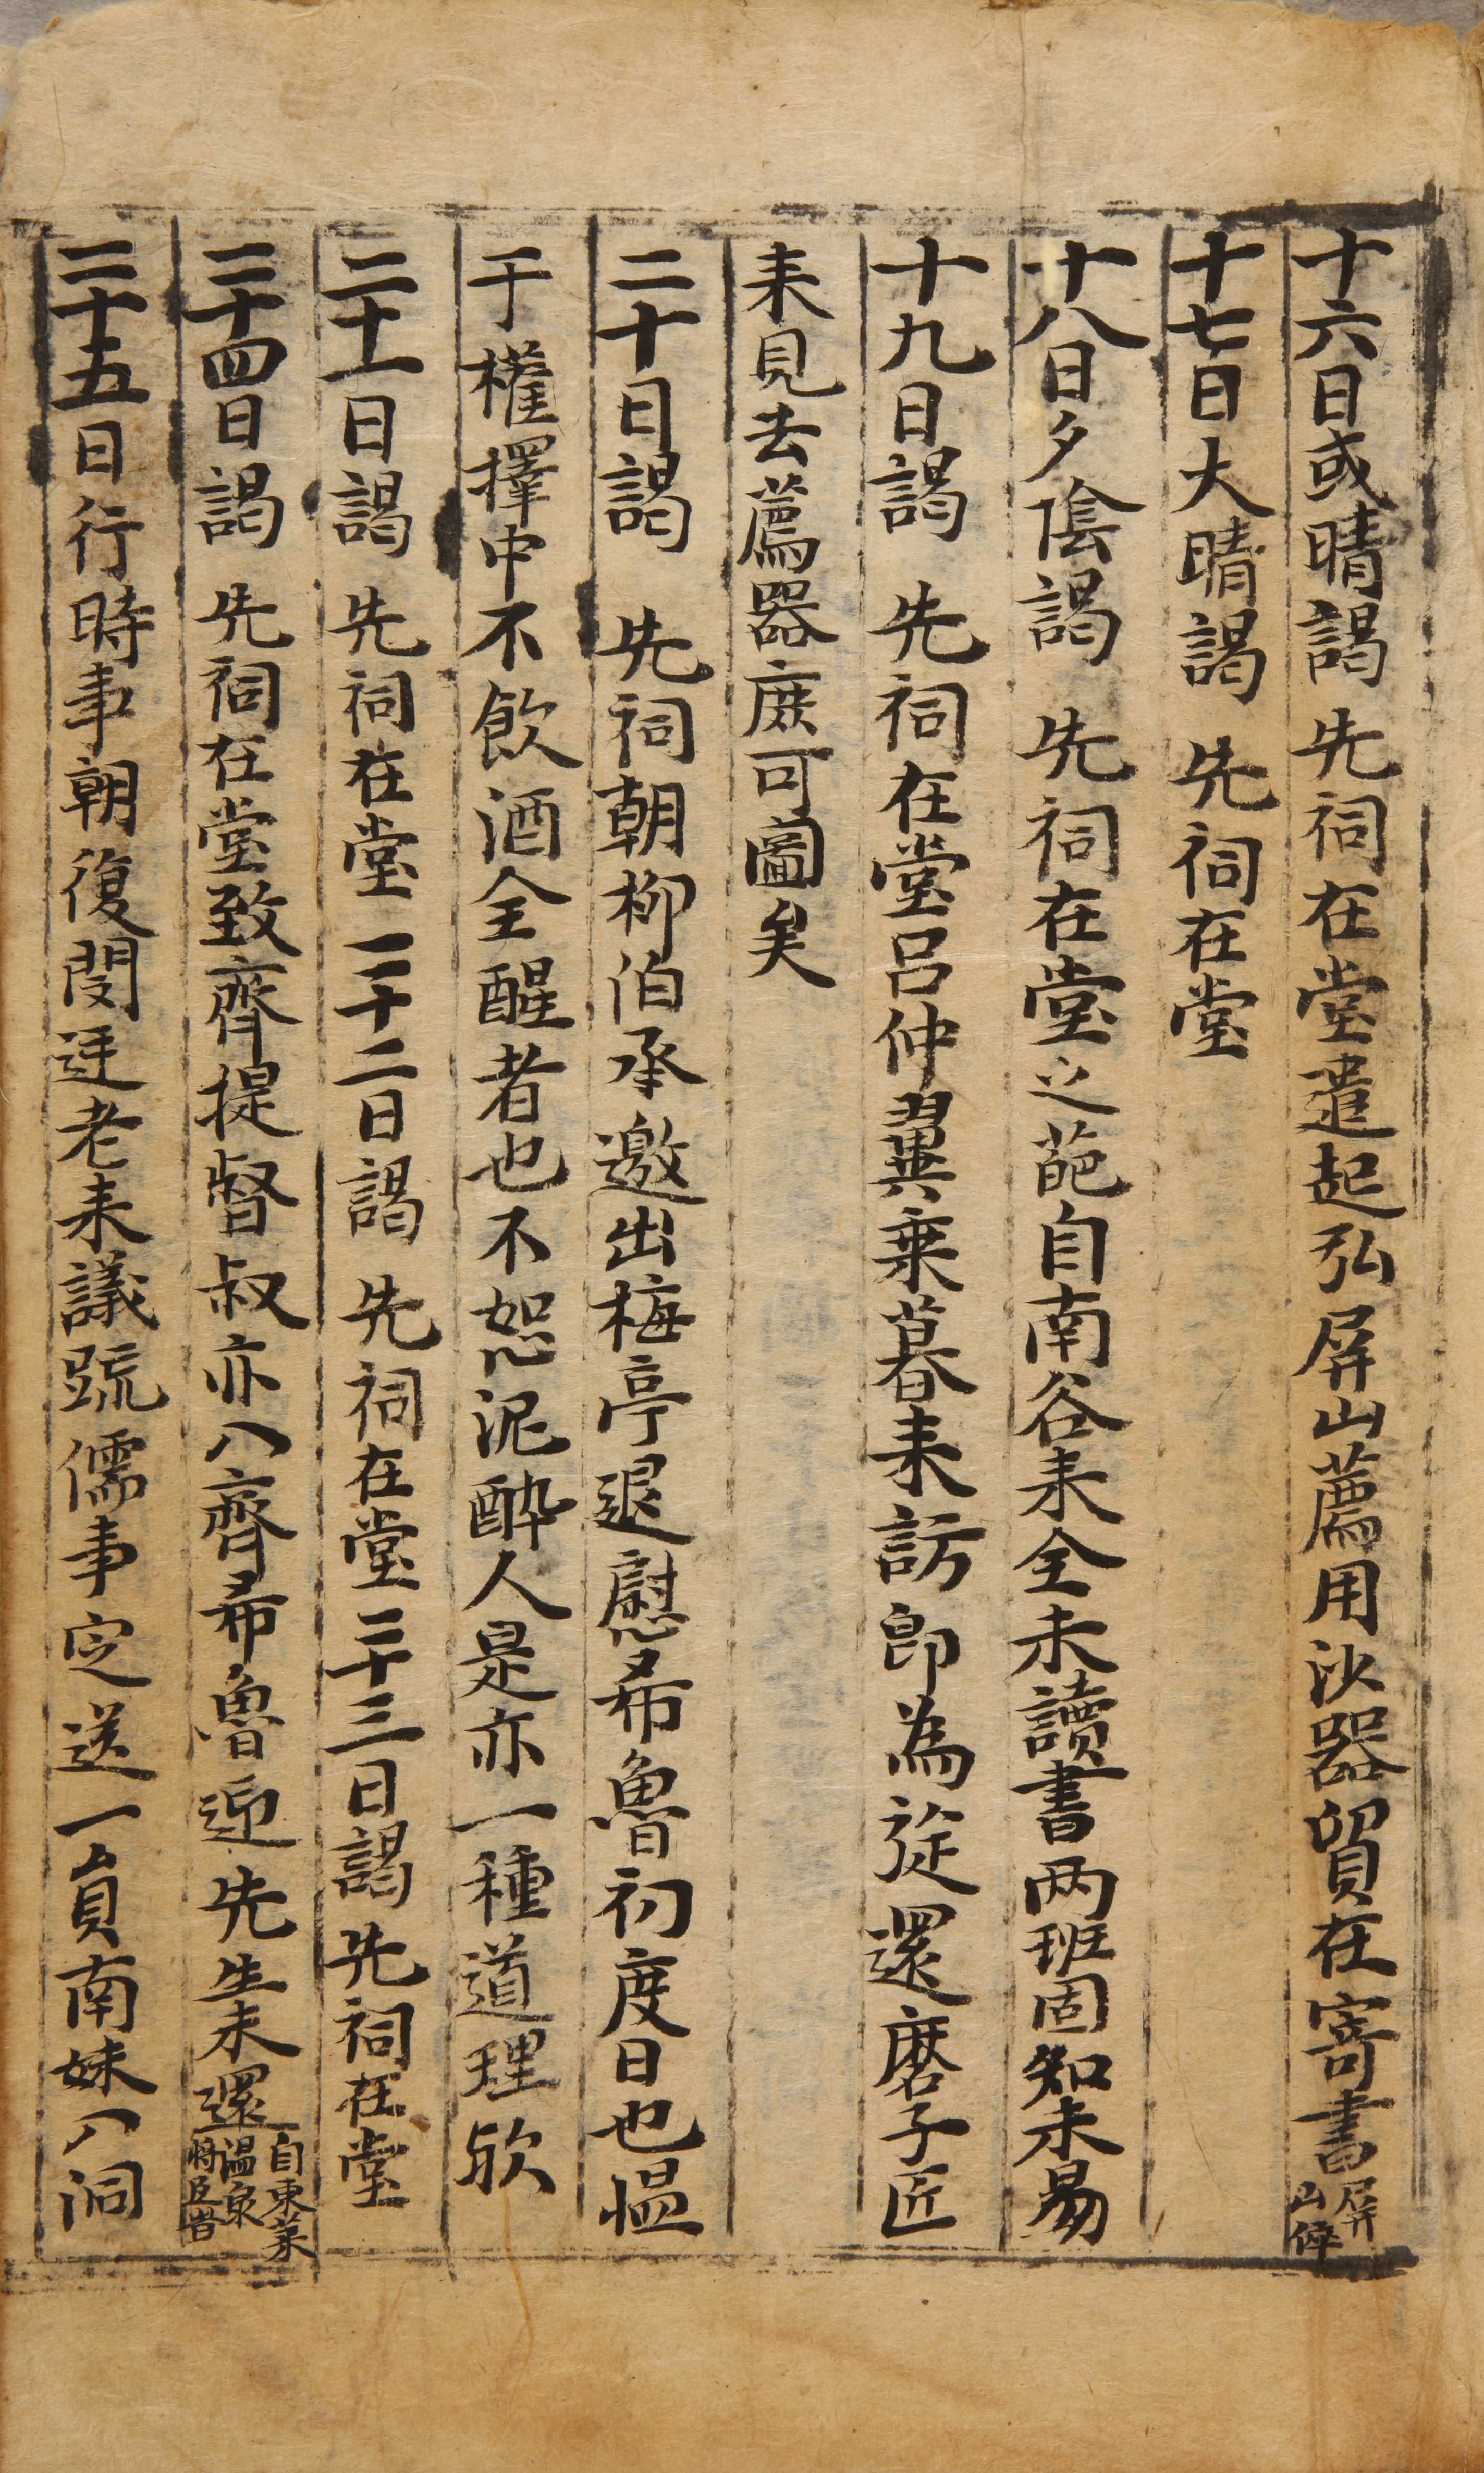 十六日或晴謁 先祠在堂遣起弘屛山薦用沙器貿在寄書屛山倅
十七日大晴謁 先祠在堂
十八日夕陰謁 先祠在堂之葩自南谷来全未讀書兩班固知未易
十九日謁 先祠在堂呂仲翼乗暮来訪卽為旋還磨子匠
来見去薦器庶可圖矣
二十日謁 先祠朝柳伯承邀出梅亭退慰希魯初度日也愠
于權擇中不飮酒全醒者也不恕泥酔人是亦一種道理欤
二十一日謁 先祠在堂 二十二日謁 先祠在堂二十三日謁 先祠在堂
二十四日謁 先祠在堂致齊提督叔亦入齊希魯迎先生未還自東萊温泉将臣昔
二十五日行時事朝復閔廷老来議疏儒事定送一員南妹入洞